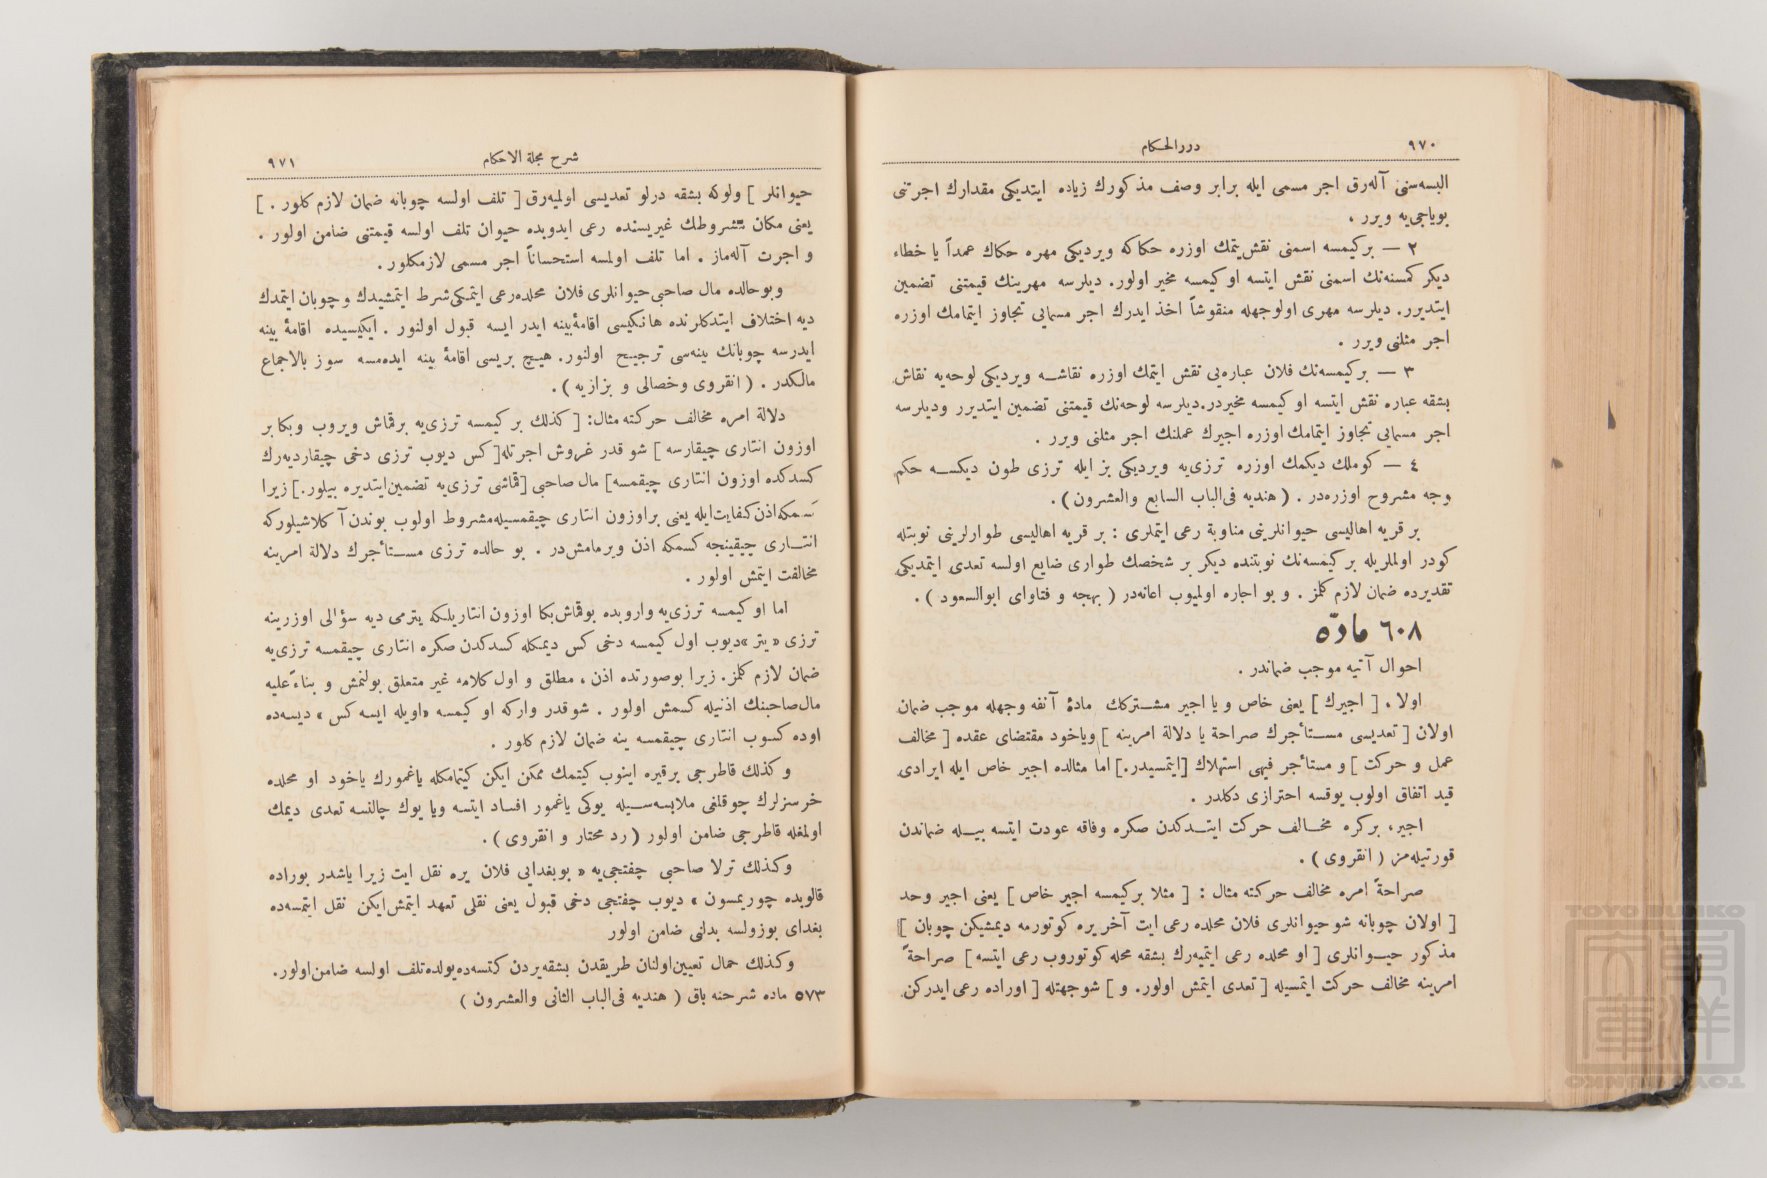 ٩٧٠
دررالحكام
البسه‌سنی آله‌رق اجر مسمی ایله برابر وصف مذكورك زیاده ایتدیكی مقدارك اجرتنی
بویاجی‌یه ویرر .
٢ — بركیمسه اسمنی نقش‌یتمك اوزره حكاكه ویردیكی مهره حكاك عمداً یا خطاء
دیكر كمسنه‌نك اسمنی نقش ایتسه او كیمسه مخیر اولور. دیلرسه مهرینك قیمتنی تضمین
ایتدیرر. دیلرسه مهری اولوجهله منقوشاً اخذ ایدرك اجر مسمایی تجاوز ایتمامك اوزره
اجر مثلنی ویرر .
٣ — بركیمسه‌نك فلان عباره‌یی نقش ایتمك اوزره نقاشه ویردیكی لوحه‌یه نقاش
بشقه عباره نقش ایتسه او كیمسه مخیردر.دیلرسه لوحه‌نك قیمتنی تضمین ایتدیرر ودیلرسه
اجر مسمایی تجاوز ایتمامك اوزره اجیرك عملنك اجر مثلنی ویرر .
٤ — كوملك دیكمك اوزره ترزی‌یه ویردیكی بز ایله ترزی طون دیكسه حكم
وجه مشروح اوزره‌در . ( هندیه فی‌الباب السابع والعشرون ) .
بر قریه اهالیسی حیوانلرینی مناوبة رعی ایتملری : بر قریه اهالیسی طوارلرینی نوبتله
كودر اولملریله بر كیمسه‌نك نوبتنده دیكر بر شخصك طواری ضایع اولسه تعدی ایتمدیكی
تقدیرده ضمان لازم كلمز . و بو اجاره اولمیوب اعانه‌در ( بهجه و فتاوای ابوالسعود ) .
٦٠٨ مادّه
احوال آتیه موجب ضماندر .
اولا ، [ اجیرك ] یعنی خاص و یا اجیر مشتركك مادۀ آنفه وجهله موجب ضمان
اولان [ تعدیسی مستأجرك صراحة یا دلالة امرینه ] ویاخود مقتضای عقده [ مخالف
عمل و حركت ] و مستأجر فیهی استهلاك [ایتمسیدر.] اما مثالده اجیر خاص ایله ایرادی
قید اتفاق اولوب یوقسه احترازی دكلدر .
اجیر، بركره مخالف حركت ایتدكدن صكره وفاقه عودت ایتسه بیله ضماندن
قورتیله‌مز ( انقروی ) .
صراحةً امره مخالف حركته مثال : [ مثلا بركیمسه اجیر خاص ] یعنی اجیر وحد
[ اولان چوبانه شو حیوانلری فلان محلده رعی ایت آخر یره كوتورمه دیمشیكن چوبان ]
مذكور حیوانلری [ او محلده رعی ایتمیه‌رك بشقه محله كوتوروب رعی ایتسه ] صراحةً
امرینه مخالف حركت ایتمسیله [ تعدی ایتمش اولور. و ] شوجهتله [ اوراده رعی ایدركن
٩٧١
شرح مجلة الاحكام
حیوانلر ] ولوكه بشقه درلو تعدیسی اولمیه‌رق [ تلف اولسه چوبانه ضمان لازم كلور . ]
یعنی مكان مشروطك غیریسنده رعی ایدوبده حیوان تلف اولسه قیمتنی ضامن اولور .
و اجرت آله‌ماز . اما تلف اولمسه استحساناً اجر مسمی لازمكلور .
وبوحالده مال صاحبی‌حیوانلری فلان محلده‌رعی ایتمكی‌شرط ایتمشیدك وچوبان ایتمدك
دیه اختلاف ایتدكلرنده هانكیسی اقامۀ‌بینه ایدر ایسه قبول اولنور . ایكیسیده اقامۀ بینه
ایدرسه چوبانك بینه‌سی ترجیح اولنور. هیچ بریسی اقامۀ بینه ایده‌مسه سوز بالاجماع
مالكدر . ( انقروی وخصالی و بزازیه ) .
دلالة امره مخالف حركته مثال: [ كذلك بر كیمسه ترزی‌یه برقماش ویروب وبكا بر
اوزون انتاری چیقارسه ] شو قدر غروش اجرتله[ كس دیوب ترزی دخی چیقاردیه‌رك
كسدكده اوزون انتاری چیقمسه] مال صاحبی [قماشی ترزی‌یه تضمین‌ایتدیره بیلور.] زیرا
كسمكه‌اذن‌كفایت‌ایله یعنی براوزون انتاری چیقمسیله‌مشروط اولوب بوندن‌آكلاشیلوركه
انتاری چیقینجه كسمكه اذن ویرمامش‌در . بو حالده ترزی مستأجرك دلالة امرینه
مخالفت ایتمش اولور .
اما او كیمسه ترزی‌یه واروبده بوقماش‌بكا اوزون انتاریلكه یترمی دیه سؤالی اوزرینه
ترزی « یتر »دیوب اول كیمسه دخی كس دیمكله كسدكدن صكره انتاری چیقمسه ترزی‌یه
ضمان لازم كلمز. زیرا بوصورتده اذن ، مطلق و اول كلامه غیر متعلق بولنمش و بناءً‌علیه
مال‌صاحبنك اذنیله كسمش اولور . شوقدر واركه او كیمسه «اویله ایسه كس» دیسه‌ده
اوده كسوب انتاری چیقمسه ینه ضمان لازم كلور .
وكذلك قاطرجی برقیره اینوب كیتمك ممكن ایكن كیتمامكله یاغمورك یاخود او محلده
خرسزلرك چوقلغی ملابسه‌سیله یوكی یاغمور افساد ایتسه ویا یوك چالنسه تعدی دیمك
اولمغله قاطرجی ضامن اولور ( رد محتار و انقروی ) .
وكذلك ترلا صاحبی چفتجی‌یه « بوبغدایی فلان یره نقل ایت زیرا یاشدر بوراده
قالوبده چوریمسون » دیوب چفتجی دخی قبول یعنی نقلی تعهد ایتمش‌ایكن نقل ایتمسه‌ده
بغدای بوزولسه بدلنی ضامن اولور
وكذلك حمال تعیین‌اولنان طریقدن بشقه‌یردن كتسه‌ده‌یولده‌تلف اولسه ضامن‌اولور.
٥٧٣ ماده شرحنه باق ( هندیه فی‌الباب الثانی والعشرون )
TOYO BUNKO
東洋文庫
TOYO BUNKO